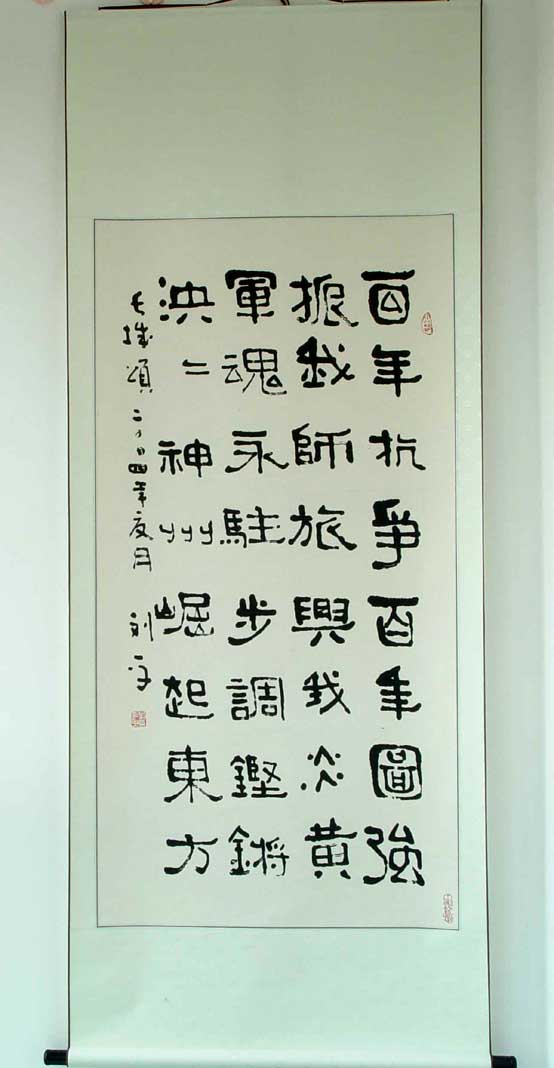 百年抗爭百年圖強
振我師旅興我炎黃
軍魂永駐步調鏗鏘
泱〻神州崛起東方
長城頌二〇〇四年夏月